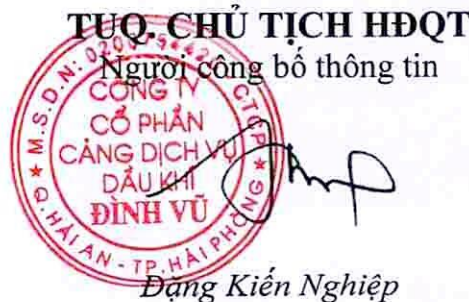 TUQ. CHỦ TỊCH HĐQT
Người công bố thông tin
M.S.D.N:
C.T.C.P
CÔNG TY
CỔ PHẦN
CẢNG DỊCH VỤ
DẦU KHÍ
ĐÌNH VŨ
Q. HẢI AN - TP. HẢI PHÒNG
Đặng Kiến Nghiệp